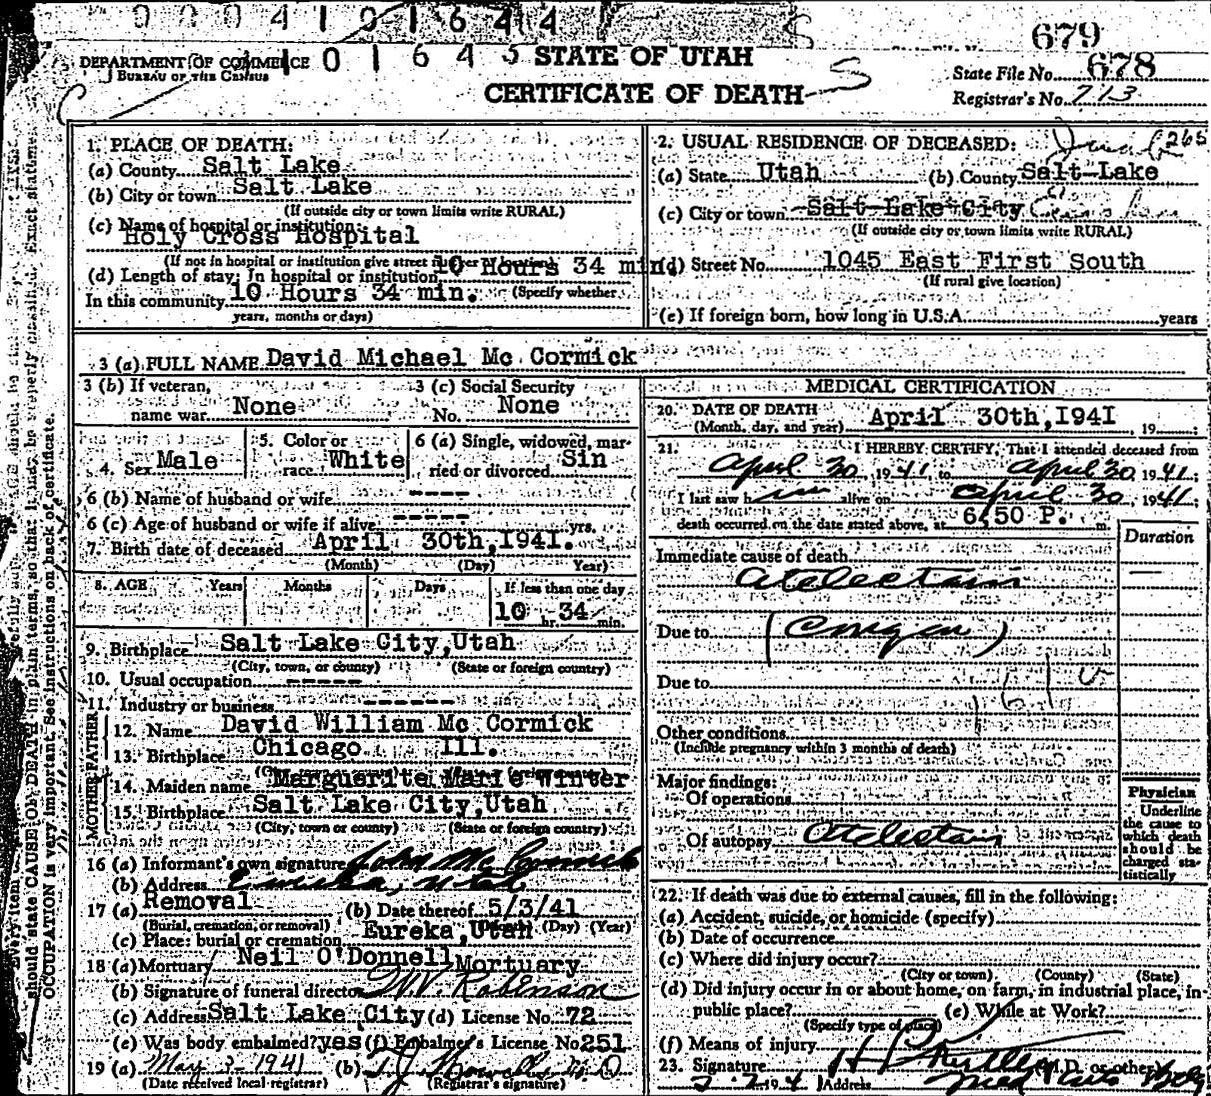 0004101644
101643
STATE OF UTAH
DEPARTMENT OF COMMERCE
BUREAU OF THE CENSUS
CERTIFICATE OF DEATH
679
State File No. 678
Registrar's No. 713
1. PLACE OF DEATH:
(a) County Salt Lake
(b) City or town Salt Lake
(If outside city or town limits write RURAL)
(c) Name of hospital or institution:
Holy Cross Hospital
(If not in hospital or institution give street number or location)
(d) Length of stay: In hospital or institution 10 Hours 34 min.
In this community 10 Hours 34 min. (Specify whether
years, months or days)
2. USUAL RESIDENCE OF DECEASED: 265
(a) State Utah (b) County Salt Lake
(c) City or town Salt Lake City
(If outside city or town limits write RURAL)
(d) Street No. 1045 East First South
(If rural give location)
(e) If foreign born, how long in U.S.A. years
3 (a) FULL NAME David Michael Mc Cormick
3 (b) If veteran,
name war None
3 (c) Social Security
No. None
4. Sex Male
5. Color or
race White
6 (a) Single, widowed, mar-
ried or divorced Sin
6 (b) Name of husband or wife ----
6 (c) Age of husband or wife if alive ----- yrs.
7. Birth date of deceased April 30th, 1941.
(Month) (Day) Year)
8. AGE Years Months Days If less than one day
10 hr. 34 min.
9. Birthplace Salt Lake City, Utah
(City, town, or county) (State or foreign country)
10. Usual occupation -----
11. Industry or business ------
FATHER
12. Name David William Mc Cormick
13. Birthplace Chicago Ill.
MOTHER
14. Maiden name Marguerite Marie Winter
15. Birthplace Salt Lake City, Utah
(City, town or county) (State or foreign country)
16 (a) Informant's own signature John Mc Cormick
(b) Address Eureka, Utah
17 (a) Removal (b) Date thereof 5/3/41
(Burial, cremation, or removal) (Day) (Year)
(c) Place: burial or cremation Eureka, Utah
18 (a) Mortuary Neil O'Donnell Mortuary
(b) Signature of funeral director W. Robinson
(c) Address Salt Lake City (d) License No. 72
(e) Was body embalmed? yes (f) Embalmer's License No. 251
19 (a) May 3-1941 (b)
(Date received local registrar) (Registrar's signature)
MEDICAL CERTIFICATION
20. DATE OF DEATH
(Month, day, and year) April 30th, 1941, 19 ;
21. I HEREBY CERTIFY, That I attended deceased from
April 30, 1941, to April 30, 1941;
I last saw him alive on April 30, 1941;
death occurred on the date stated above, at 6,50 P. m.
Duration
Immediate cause of death
Atelectasis
Due to (Congen)
Due to
161
Other conditions
(Include pregnancy within 3 months of death)
Major findings:
Of operations
Of autopsy Atelectasis
Physician
Underline
the cause to
which death
should be
charged sta-
tistically
22. If death was due to external causes, fill in the following:
(a) Accident, suicide, or homicide (specify)
(b) Date of occurrence
(c) Where did injury occur?
(City or town) (County) (State)
(d) Did injury occur in or about home, on farm, in industrial place, in
public place? (e) While at Work?
(Specify type of place)
(f) Means of injury
23. Signature (M.D. or other)
Address Med Arts Bldg
should state CAUSE OF DEATH in plain terms, so that it may be properly classified. Exact statement
OCCUPATION is very important. See instructions on back of certificate.